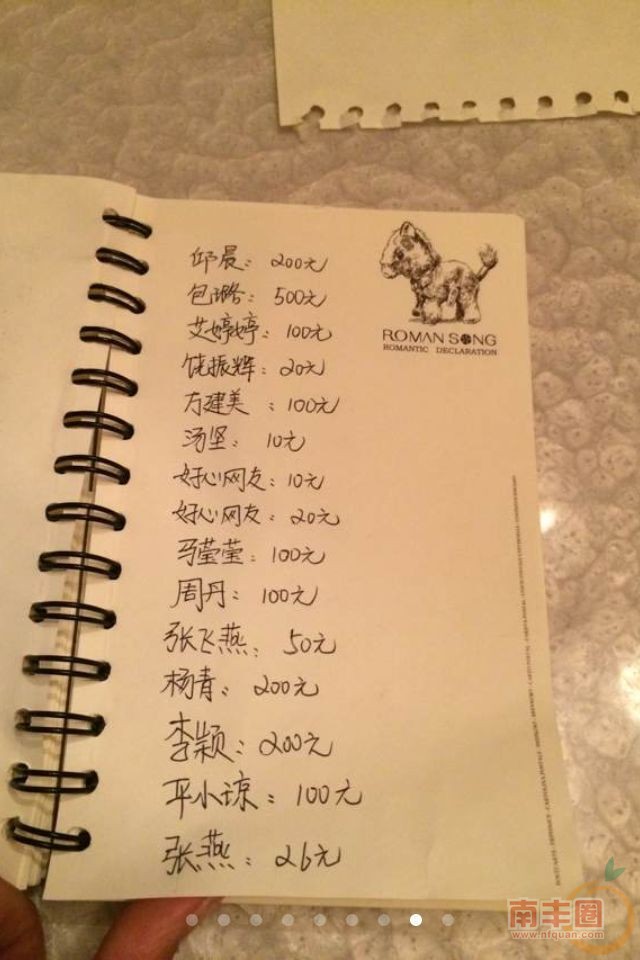 邱晨：200元
包璐：500元
艾婷婷：100元
饶振辉：20元
方建美：100元
汤坚：10元
好心网友：10元
好心网友：20元
马莹莹：100元
周丹：100元
张飞燕：50元
杨青：200元
李颖：200元
平小琼：100元
张燕：26元
ROMAN SONG
ROMANTIC DECLARATION
南丰圈
www.nfquan.com